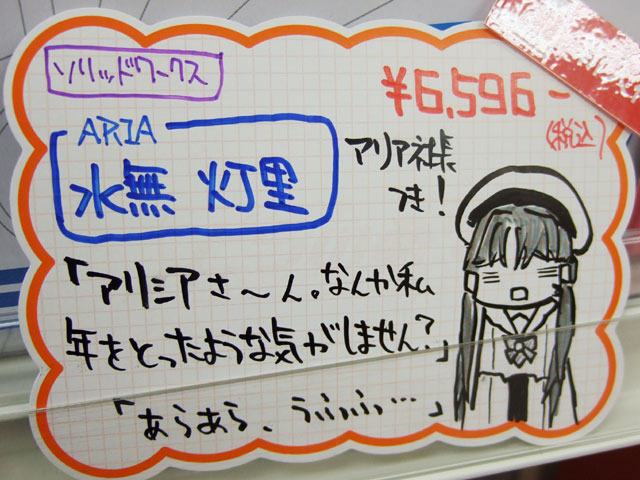 ソリッドワークス
¥6,596-
(税込)
ARIA
水無 灯里
アリア社長
つき!
「アリシアさ〜ん。なんか私
年をとったような気がしません?」
「あらあら、うふふふ…」